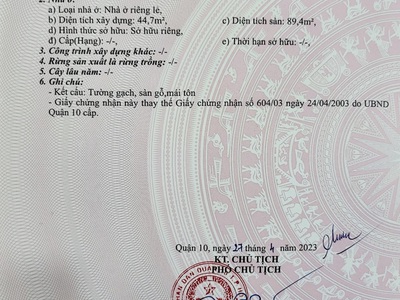 a) Loại nhà ở: Nhà ở riêng lẻ,
b) Diện tích xây dựng: 44,7m², c) Diện tích sàn: 89,4m²,
d) Hình thức sở hữu: Sở hữu riêng,
đ) Cấp(Hạng): -/-, e) Thời hạn sở hữu: -/-,
3. Công trình xây dựng khác: -/-
4. Rừng sản xuất là rừng trồng: -/-
5. Cây lâu năm: -/-
6. Ghi chú:
- Kết cấu: Tường gạch, sàn gỗ,mái tôn
- Giấy chứng nhận này thay thế Giấy chứng nhận số 604/03 ngày 24/04/2003 do UBND
Quận 10 cấp.
Quận 10, ngày 27 tháng 4 năm 2023
KT. CHỦ TỊCH
PHÓ CHỦ TỊCH